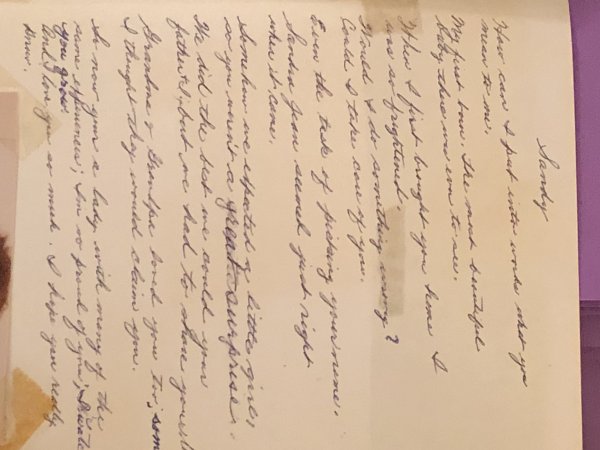 Sandy
How can I put into words what you
mean to me.
My first born. The most beautiful
baby there was ever to see.
When I first brought you home I
was so frightened.
Would I do something wrong?
Could I take care of you.
Even the task of picking your name.
Sandra Jean sounds just right
when it came.
Somehow we expected a little girl,
so you weren't a great surprise.
We did the best we could your
father & I, but we had to share
Grandma & Grandpa loved you too, som
I thought they would claim you.
So now your a lady with many of the
same experiences; I'm so proud of you;
you grow.
And I love you so much. I hope you really
know.